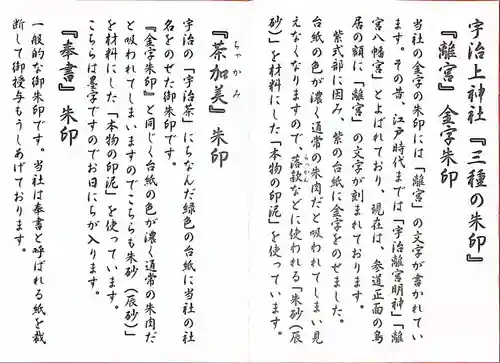 宇治上神社『三種の朱印』
『離宮』金字朱印
当社の金字の朱印には「離宮」の文字が書かれてい
ます。その昔、江戸時代までは「宇治離宮明神」「離
宮八幡宮」とよばれており、現在は、参道正面の鳥
居の額に「離宮」の文字が刻まれております。
紫式部に因み、紫の台紙に金字をのせました。
台紙の色が濃く通常の朱肉だと吸われてしまい見
えなくなりますので、落款などに使われる「朱砂（辰
砂）」を材料にした「本物の印泥」を使っています。
『茶加美』朱印
ちゃかみ
宇治の「宇治茶」にちなんだ緑色の台紙に当社の社
名をのせた御朱印です。
『金字朱印』と同じく台紙の色が濃く通常の朱肉だ
と吸われてしまいますのでこちらも朱砂（辰砂）」
を材料にした「本物の印泥」を使っています。
こちらは墨字ですのでお日にちが入ります。
『奉書』朱印
一般的な御朱印です。当社は奉書と呼ばれる紙を裁
断して御授与もうしあげております。